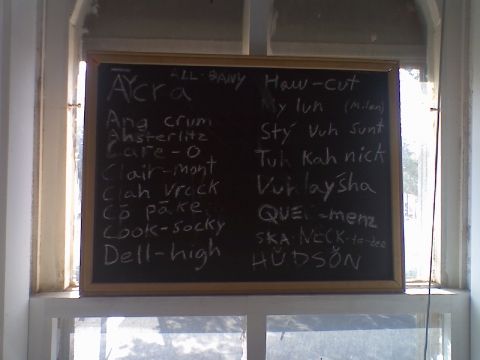 ALL-BANY
Āycra
Ang crum
Ahsterlitz
Care-O
Clair-mont
Clah vrack
Cō pāke
Cook-socky
Dell-high
Haw-cut
My lun (Milan)
Stȳ vuh sunt
Tuh Kah nick
Vuhlaysha
-menz
SKA NECK-ta-dee
HŬDSŎN